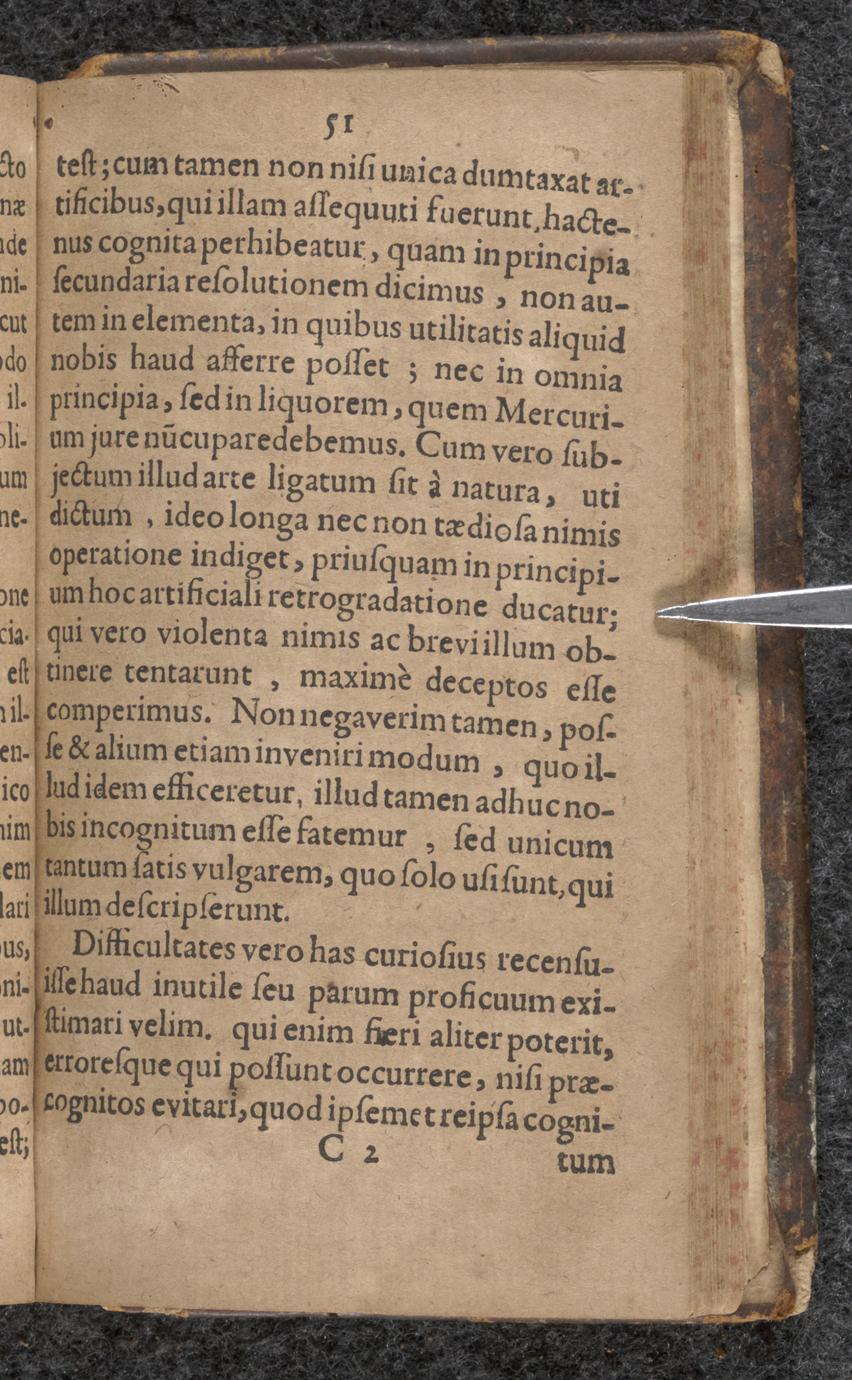 51
teſt; cum tamen non niſi unica dumtaxat ar-
tificibus, qui illam aſſequuti fuerunt, hacte-
nus cognita perhibeatur, quam in principia
ſecundaria reſolutionem dicimus, non au-
tem in elementa, in quibus utilitatis aliquid
nobis haud afferre poſſet; nec in omnia
principia, ſed in liquorem, quem Mercuri-
um jure nūcupare debemus. Cum vero ſub-
jectum illud arte ligatum ſit à natura, uti
dictum, ideo longa nec non tædioſa nimis
operatione indiget, priuſquam in principi-
um hoc artificiali retrogradatione ducatur;
qui vero violenta nimis ac brevi illum ob-
tinere tentarunt, maximè deceptos eſſe
comperimus. Non negaverim tamen, poſ-
ſe & alium etiam inveniri modum, quo il-
lud idem efficeretur, illud tamen adhuc no-
bis incognitum eſſe fatemur, ſed unicum
tantum ſatis vulgarem, quo ſolo uſi ſunt, qui
illum deſcripſerunt.
Difficultates vero has curioſius recenſu-
iſſe haud inutile ſeu parum proficuum exi-
ſtimari velim. qui enim fieri aliter poterit,
erroreſque qui poſſunt occurrere, niſi præ-
cognitos evitari, quod ipſemet reipſa cogni-
C 2
tum
cto
næ
ni-
cut
il-
um
ne-
one
eſt
en-
ico
em
lari
us,
ni-
ut-
am
eſt;